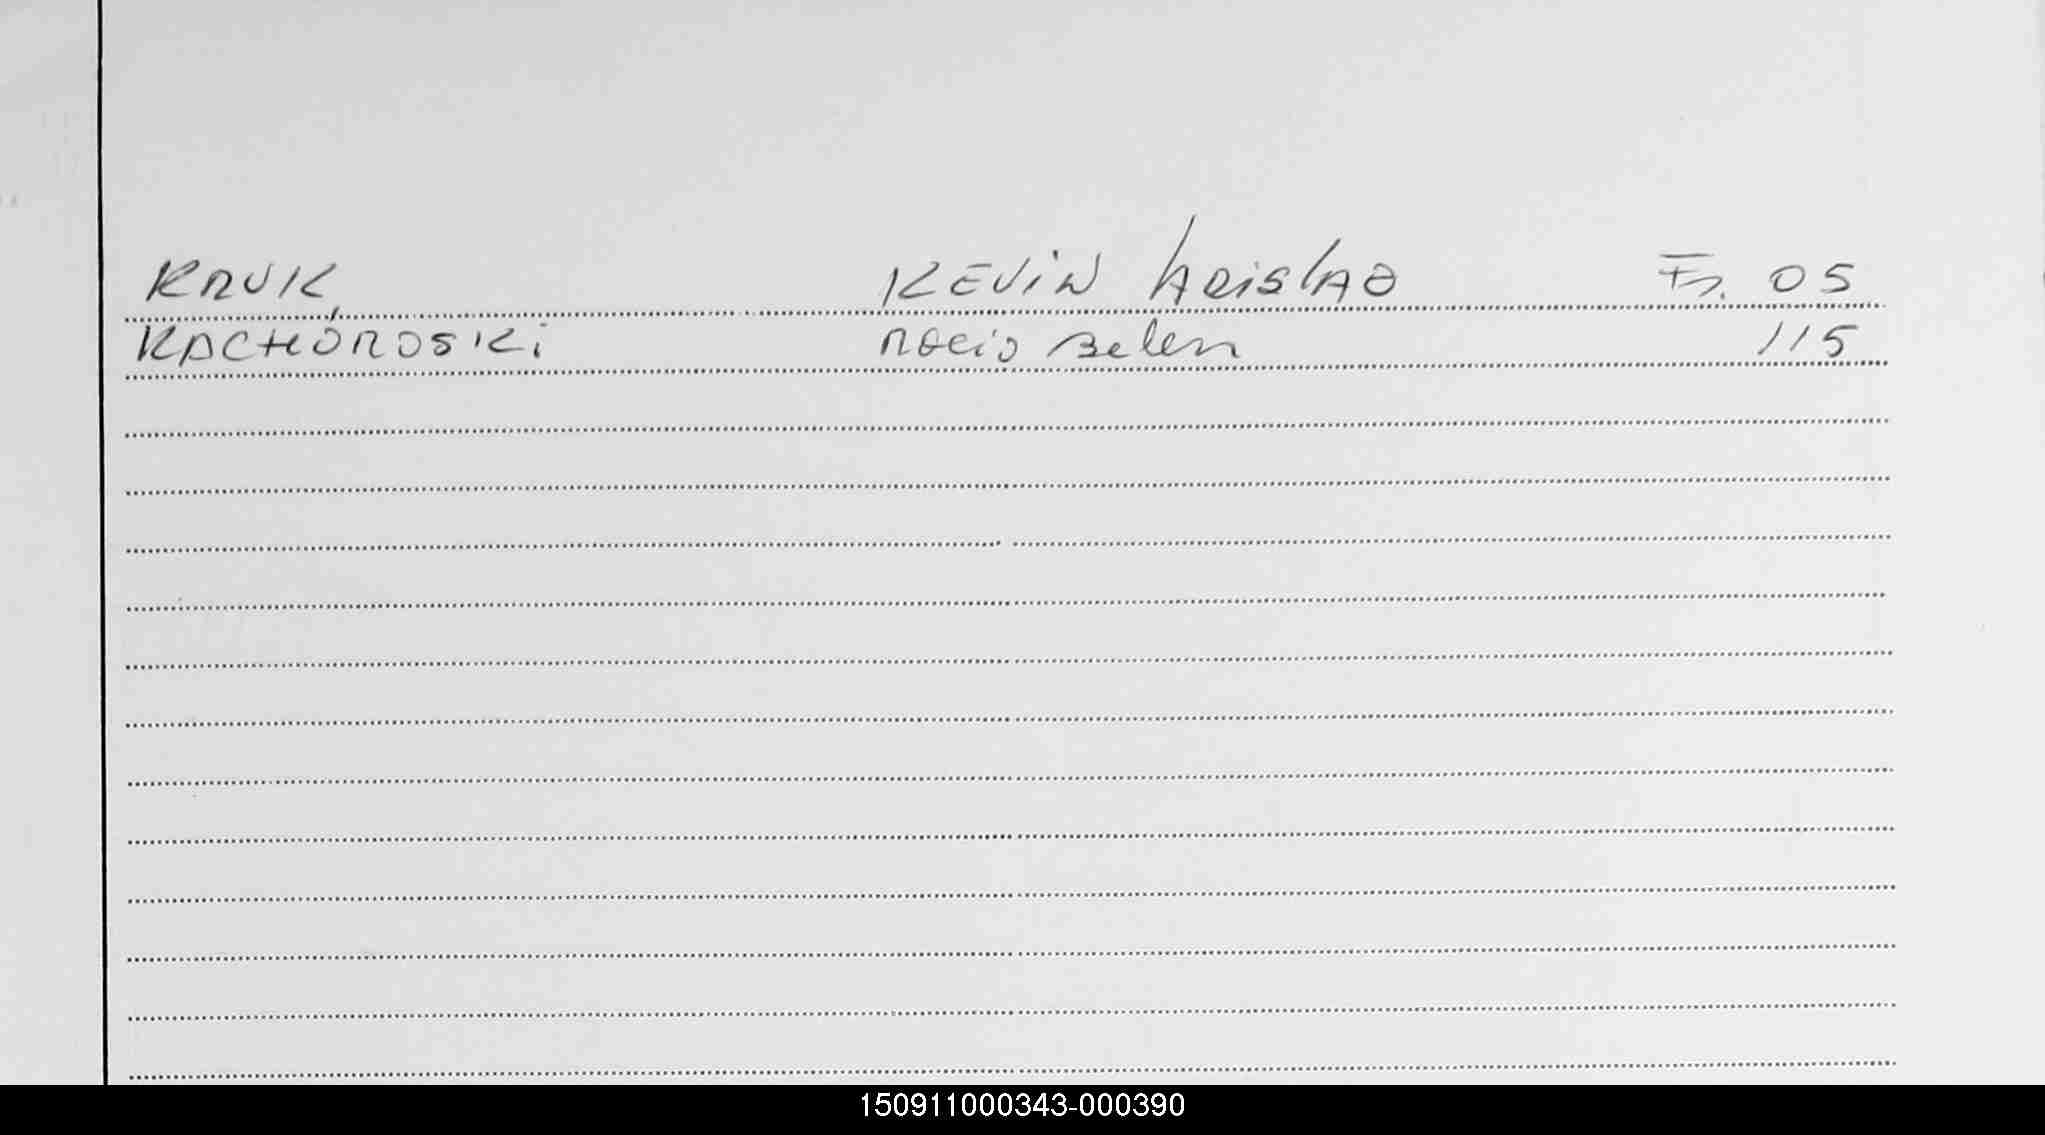 KRUK KEVIN Arislao Fs. 05
KACHOROSKi Rocio Belen 115
150911000343-000390